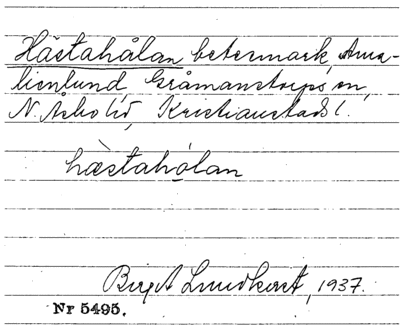 Hästahålan betesmark, Ama-
lienlund, Gråmanstorps sn,
N. Åsbo hd, Kristianstads l.
hæstahólan
Birgit Lundkvist, 1937.
Nr 5495.